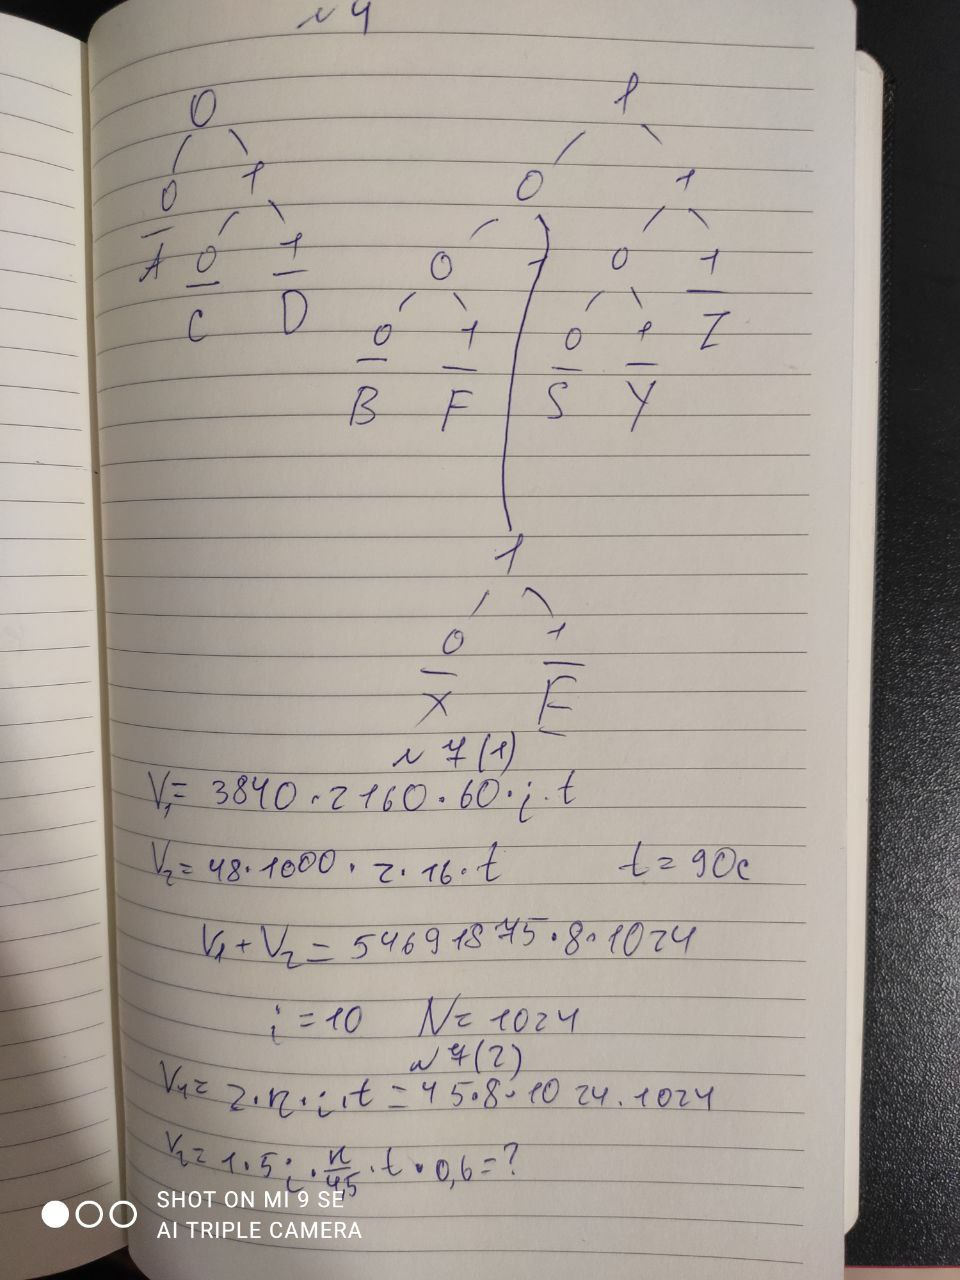 № 4
0 1
0 1 0 1
A 0 1 0 1 0 1
C D 0 1 0 1 Z
B F S Y
1
0 1
X E
№ 7 (1)
V₁ = 3840 · 2160 · 60 · i · t
V₂ = 48 · 1000 · 2 · 16 · t t = 90c
V₁ + V₂ = 54691875 · 8 · 1024
i = 10 N = 1024
№ 7 (2)
V₁ = 2 · n · i · t = 45 · 8 · 1024 · 1024
V₂ = 1 · 5i · n/4,5 · t · 0,6 = ?
SHOT ON MI 9 SE
AI TRIPLE CAMERA